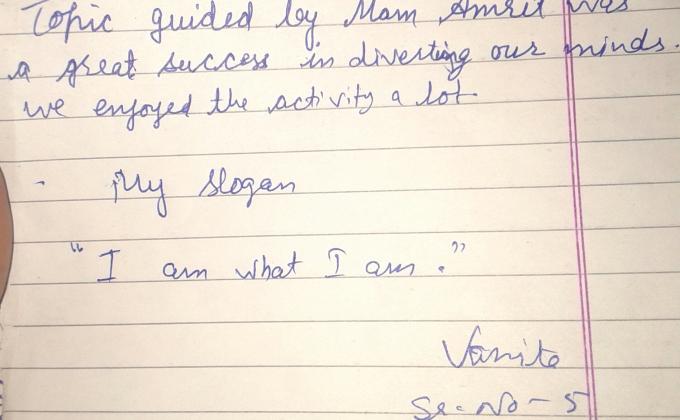 Topic guided by Mam Amrit was
a great success in diverting our minds.
we enjoyed the activity a lot.
- My slogan
"I am what I am."
Vanita
Sr. No - 5